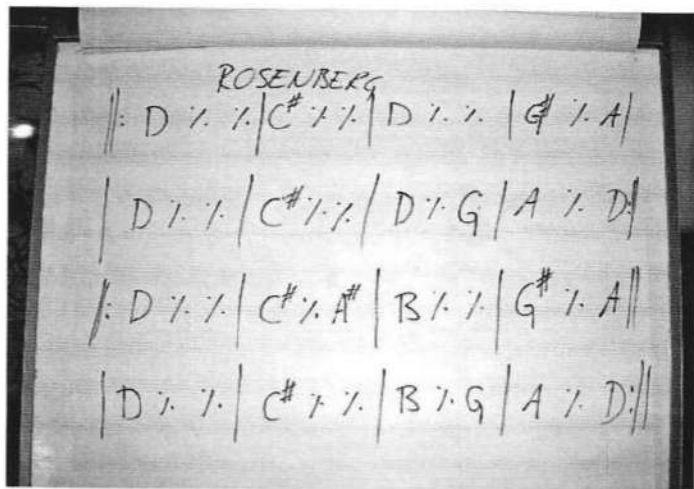 ROSENBERG
||: D ٪ ٪ | C# ٪ ٪ | D ٪ ٪ | G# ٪ A |
| D ٪ ٪ | C# ٪ ٪ | D ٪ G | A ٪ D :||
||: D ٪ ٪ | C# ٪ A# | B ٪ ٪ | G# ٪ A ||
| D ٪ ٪ | C# ٪ ٪ | B ٪ G | A ٪ D :||